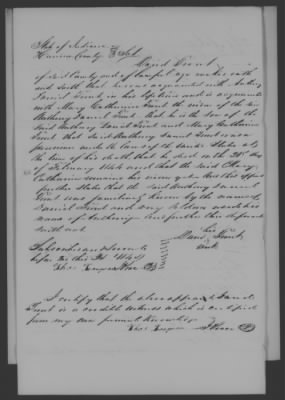 State of Indiana
County Sct.
David Trout
of said county and of lawful age makes oath
and saith that he was acquainted with
Daniel Trout in his lifetime and is acquainted
with Mary Catharine Trout the widow of the said
Anthony Daniel Trout. that he is the son of the
said Anthony Daniel Trout and Mary Catharine
Trout that said Anthony Daniel Trout was a
pensioner under the law of the United States at
the time of his death that he died on the
of February 1844 and that the said Mary
Catharine remains his widow yet. And this affiant
further states that the said Anthony Daniel
Trout was familiarly known by the name of
Daniel Trout and very seldom used his
name of Anthony. And further this deponent
saith not.
his
David Trout
mark
Subscribed and sworn to
before me this 1844
I certify that the above affiant David
Trout is a credible witness which is certified
from my own personal knowledge